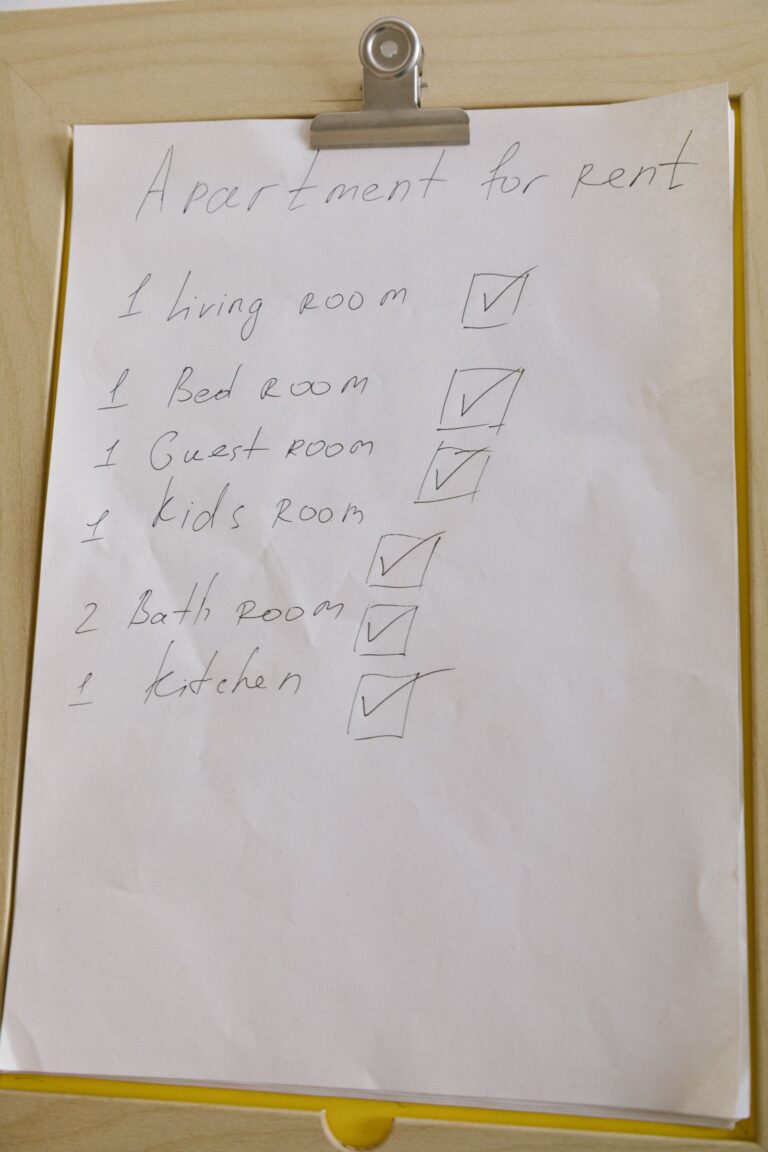 Apartment for Rent
1 Living Room ☑
1 Bed Room ☑
1 Guest Room ☑
1 Kids Room ☑
2 Bath Room ☑
1 Kitchen ☑